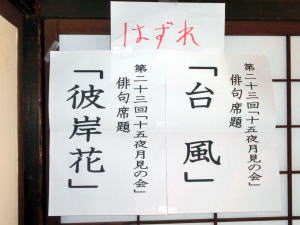 はずれ
第二十三回「十五夜月見の会」
俳句席題
「台風」
第二十三回「十五夜月見の会」
俳句席題
「彼岸花」